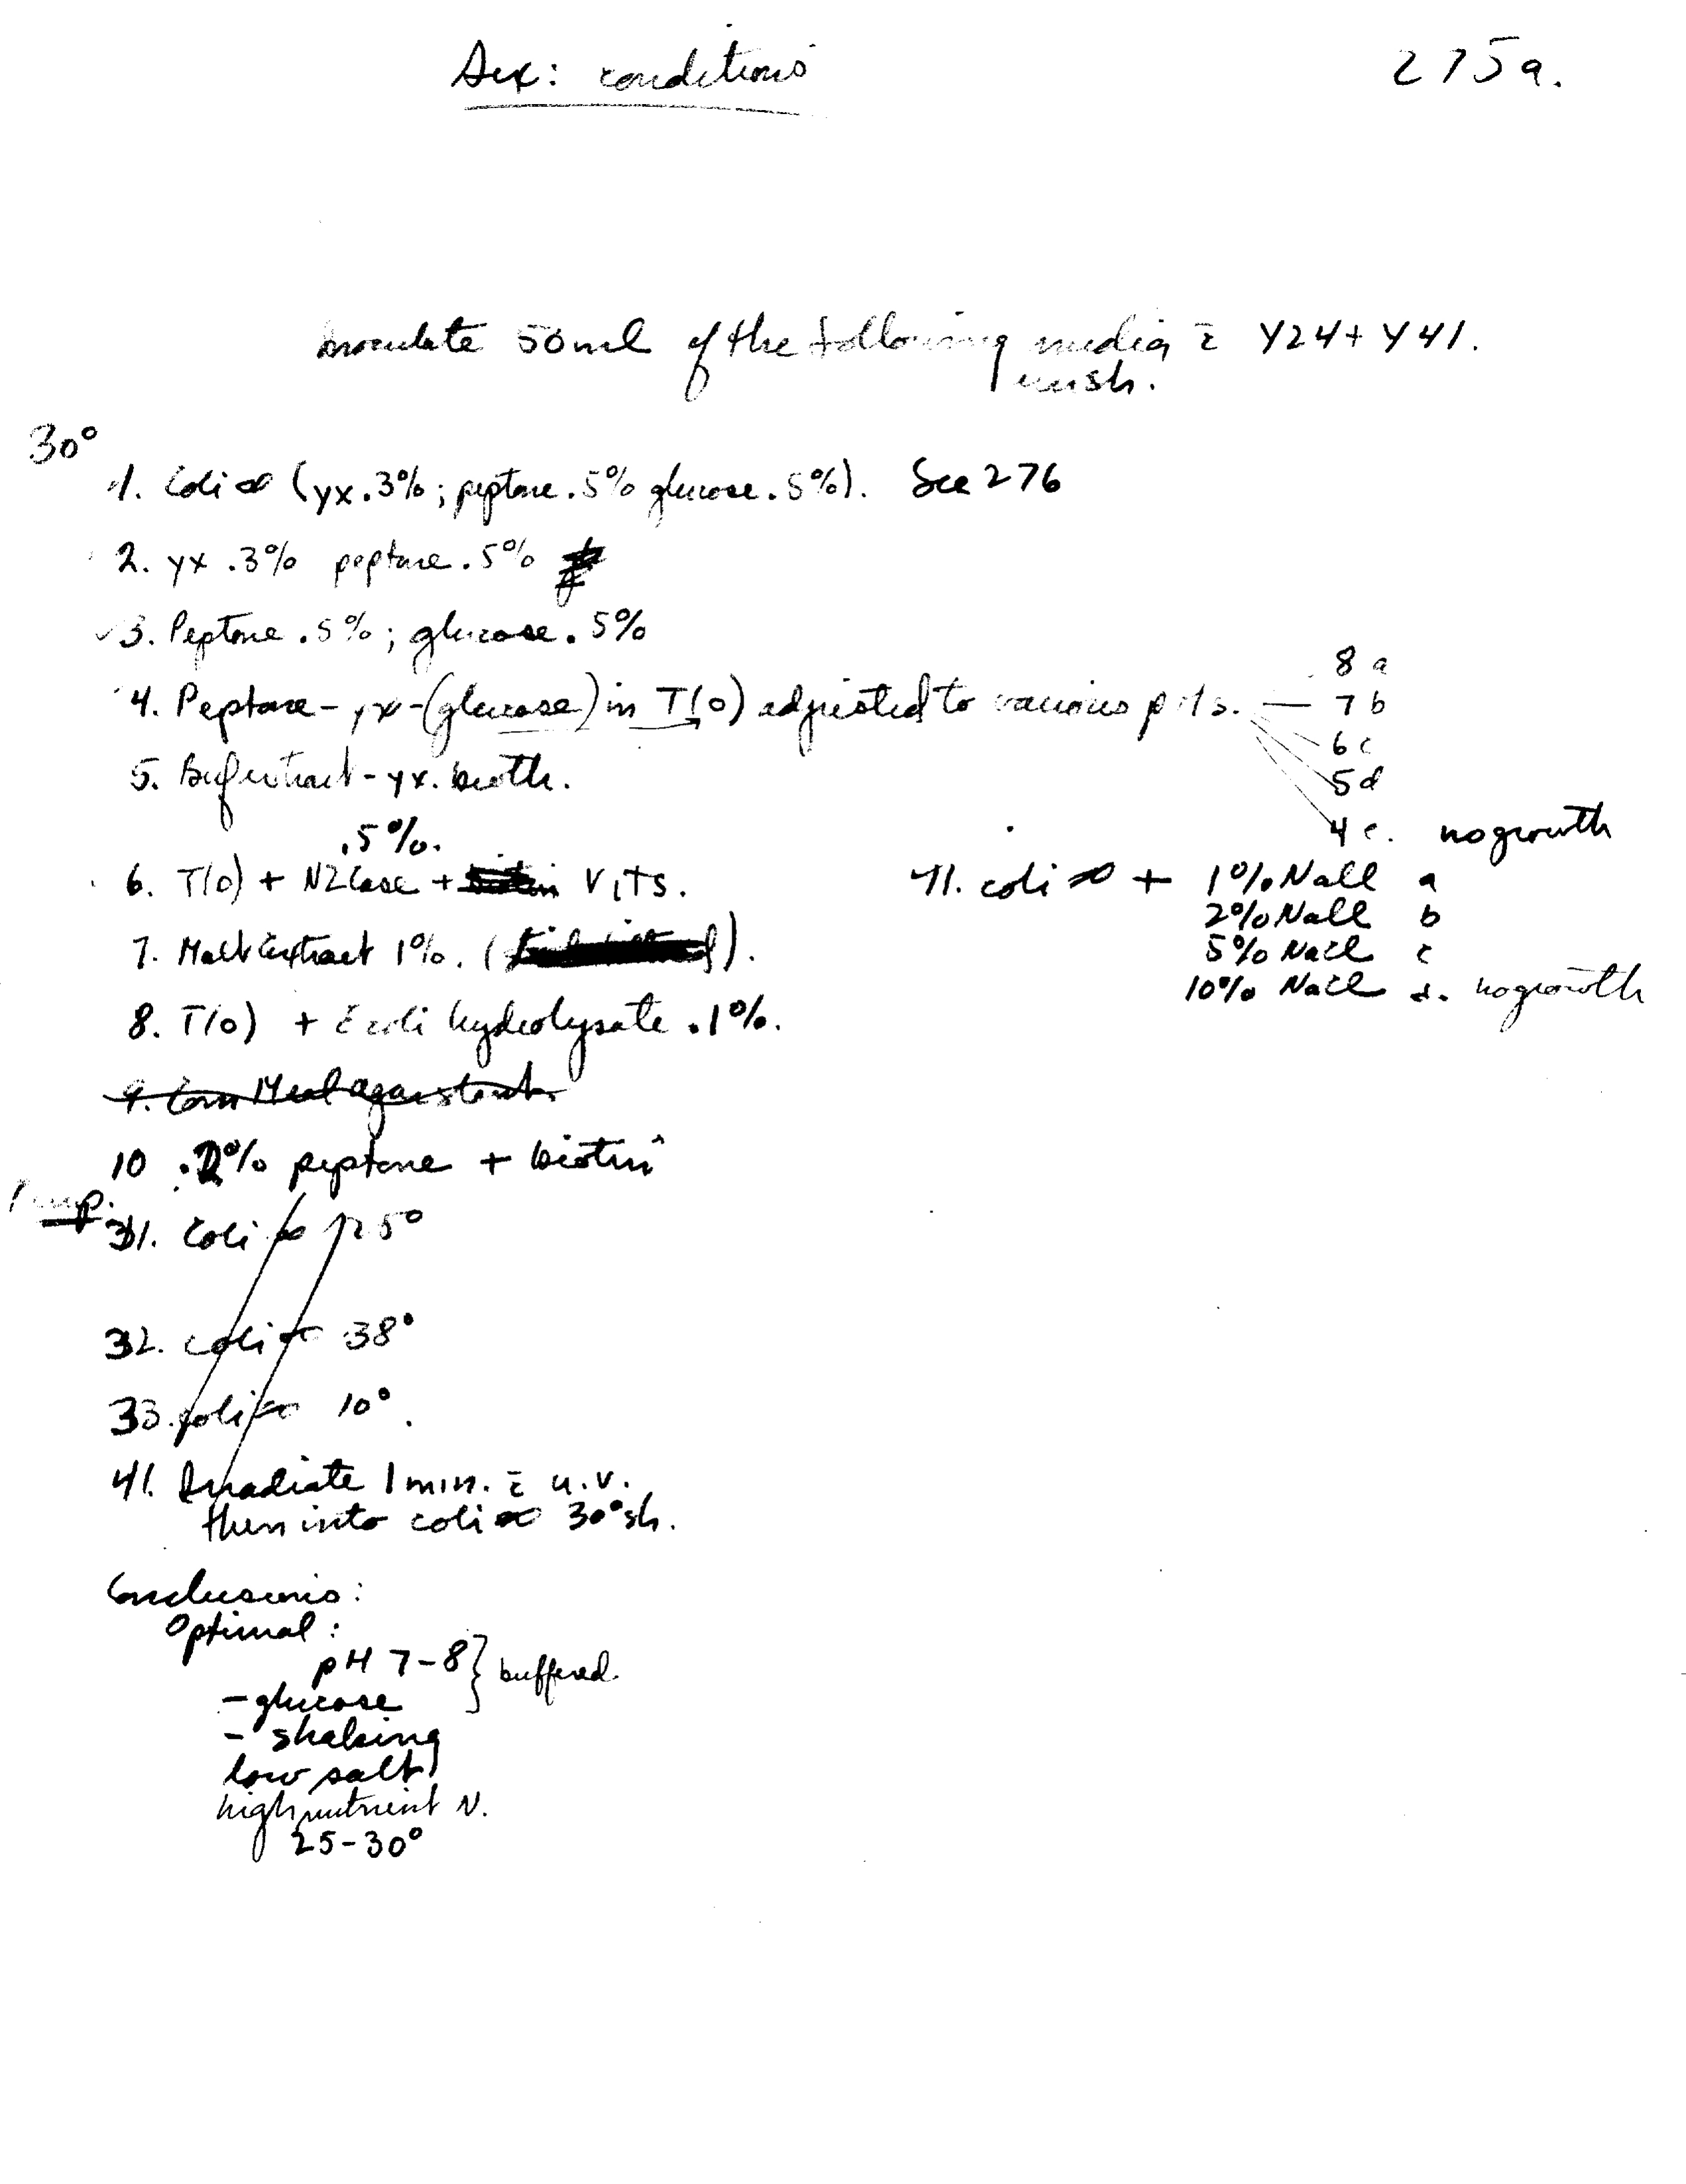 Sex: conditions
275a.
Inoculate 50 ml of the following media c̄ Y24 + Y41.
unsh.
30°
1. Coli ∞ (yx .3%; peptone .5% glucose .5%). See 276
2. yx .3% peptone .5%
3. Peptone .5%; glucose .5%
4. Peptone - yx - (glucose) in T(0) adjusted to various pHs. — 8 a
7 b
6 c
5 d
4 e. no growth
5. Beef extract - yx. broth.
.5%.
6. T(0) + NZCase + vits.
7. Malt Extract 1%. ( ).
8. T(0) + E coli hydrolysate .1%.
9. Corn Meal agar
10 .2% peptone + biotin
Temp.
31. Coli ∞ 25°
32. coli ∞ 38°
33. coli ∞ 10°.
41. Irradiate 1 min. c̄ u.v.
then into coli ∞ 30° sh.
41. coli ∞ + 1% NaCl a
2% NaCl b
5% NaCl c
10% NaCl d. no growth
Conclusions:
Optimal:
pH 7-8 } buffered
- glucose
- shaking
low salt
high nutrient N.
25-30°